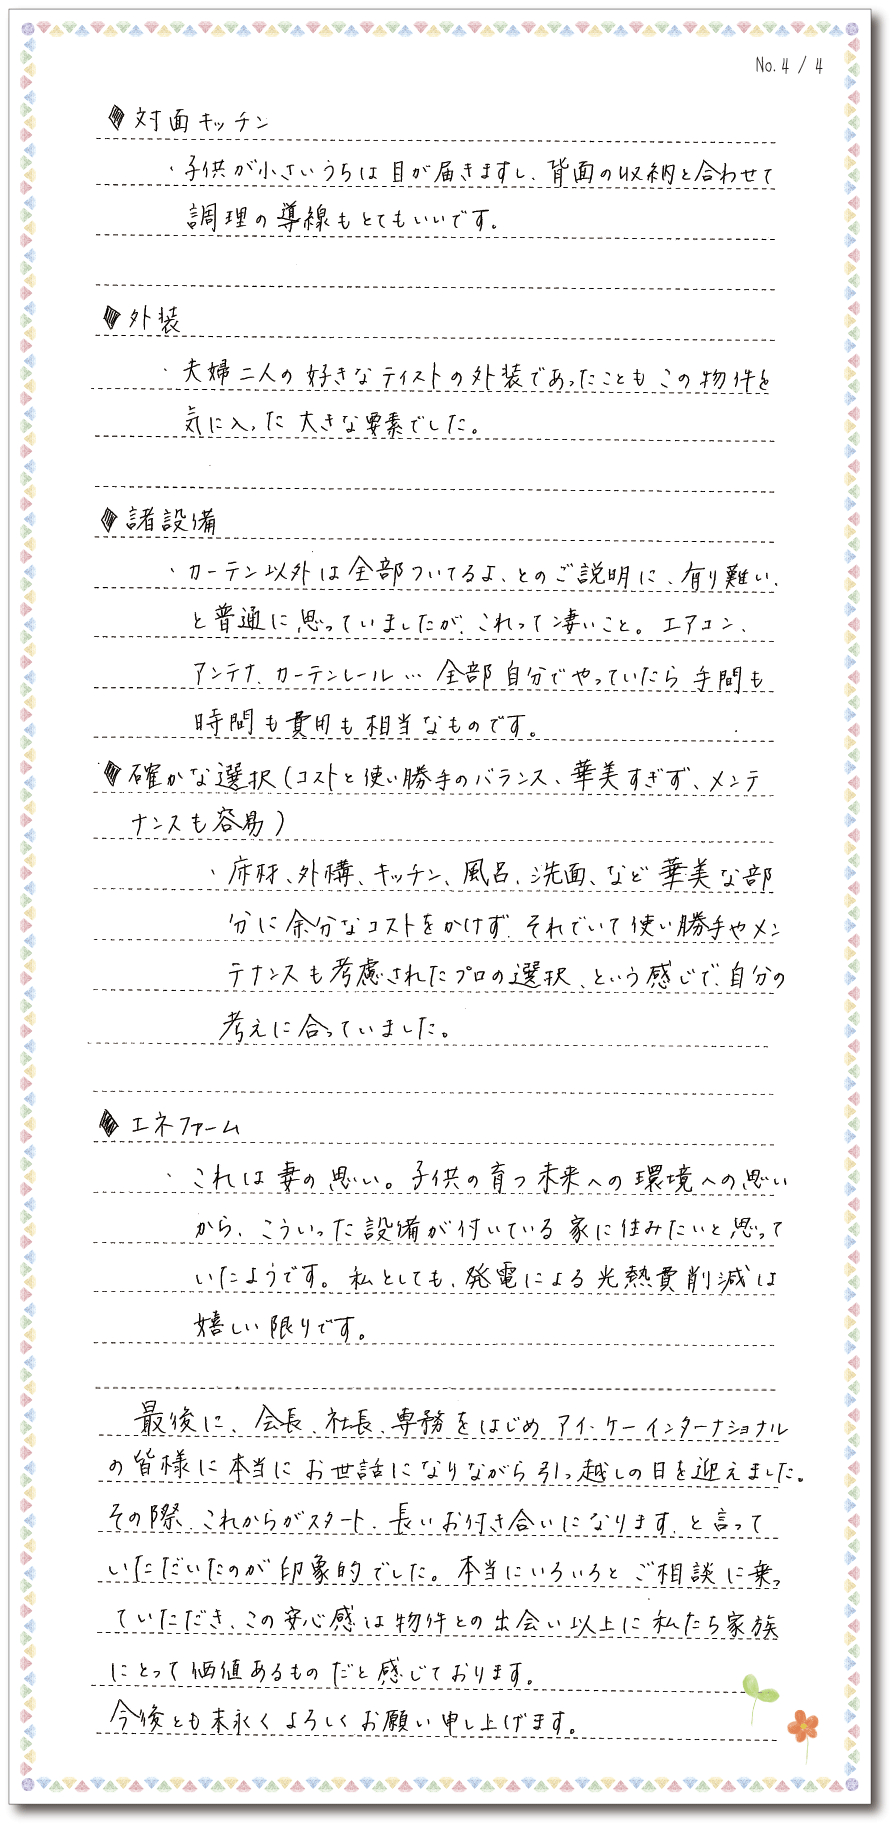 No. 4 / 4
◆対面キッチン
・子供が小さいうちは目が届きますし、背面の収納と合わせて
調理の導線もとてもいいです。
◆外装
・夫婦二人の好きなテイストの外装であったこともこの物件を
気に入った大きな要素でした。
◆諸設備
・カーテン以外は全部ついてるよ、とのご説明に、有り難い、
と普通に思っていましたが、これって凄いこと。エアコン、
アンテナ、カーテンレール… 全部自分でやっていたら手間も
時間も費用も相当なものです。
◆確かな選択(コストと使い勝手のバランス、華美すぎず、メンテ
ナンスも容易)
・床材、外構、キッチン、風呂、洗面、など華美な部
分に余分なコストをかけず、それでいて使い勝手やメン
テナンスも考慮されたプロの選択、という感じで、自分の
考えに合っていました。
◆エネファーム
・これは妻の思い。子供の育つ未来への環境への思い
から、こういった設備が付いている家に住みたいと思って
いたようです。私としても、発電による光熱費削減は
嬉しい限りです。
最後に、会長、社長、専務をはじめアイ・ケーインターナショナル
の皆様に本当にお世話になりながら引っ越しの日を迎えました。
その際、これからがスタート、長いお付き合いになります、と言って
いただいたのが印象的でした。本当にいろいろとご相談に乗っ
ていただき、この安心感は物件との出会い以上に私たち家族
にとって価値あるものだと感じております。
今後とも末永くよろしくお願い申し上げます。